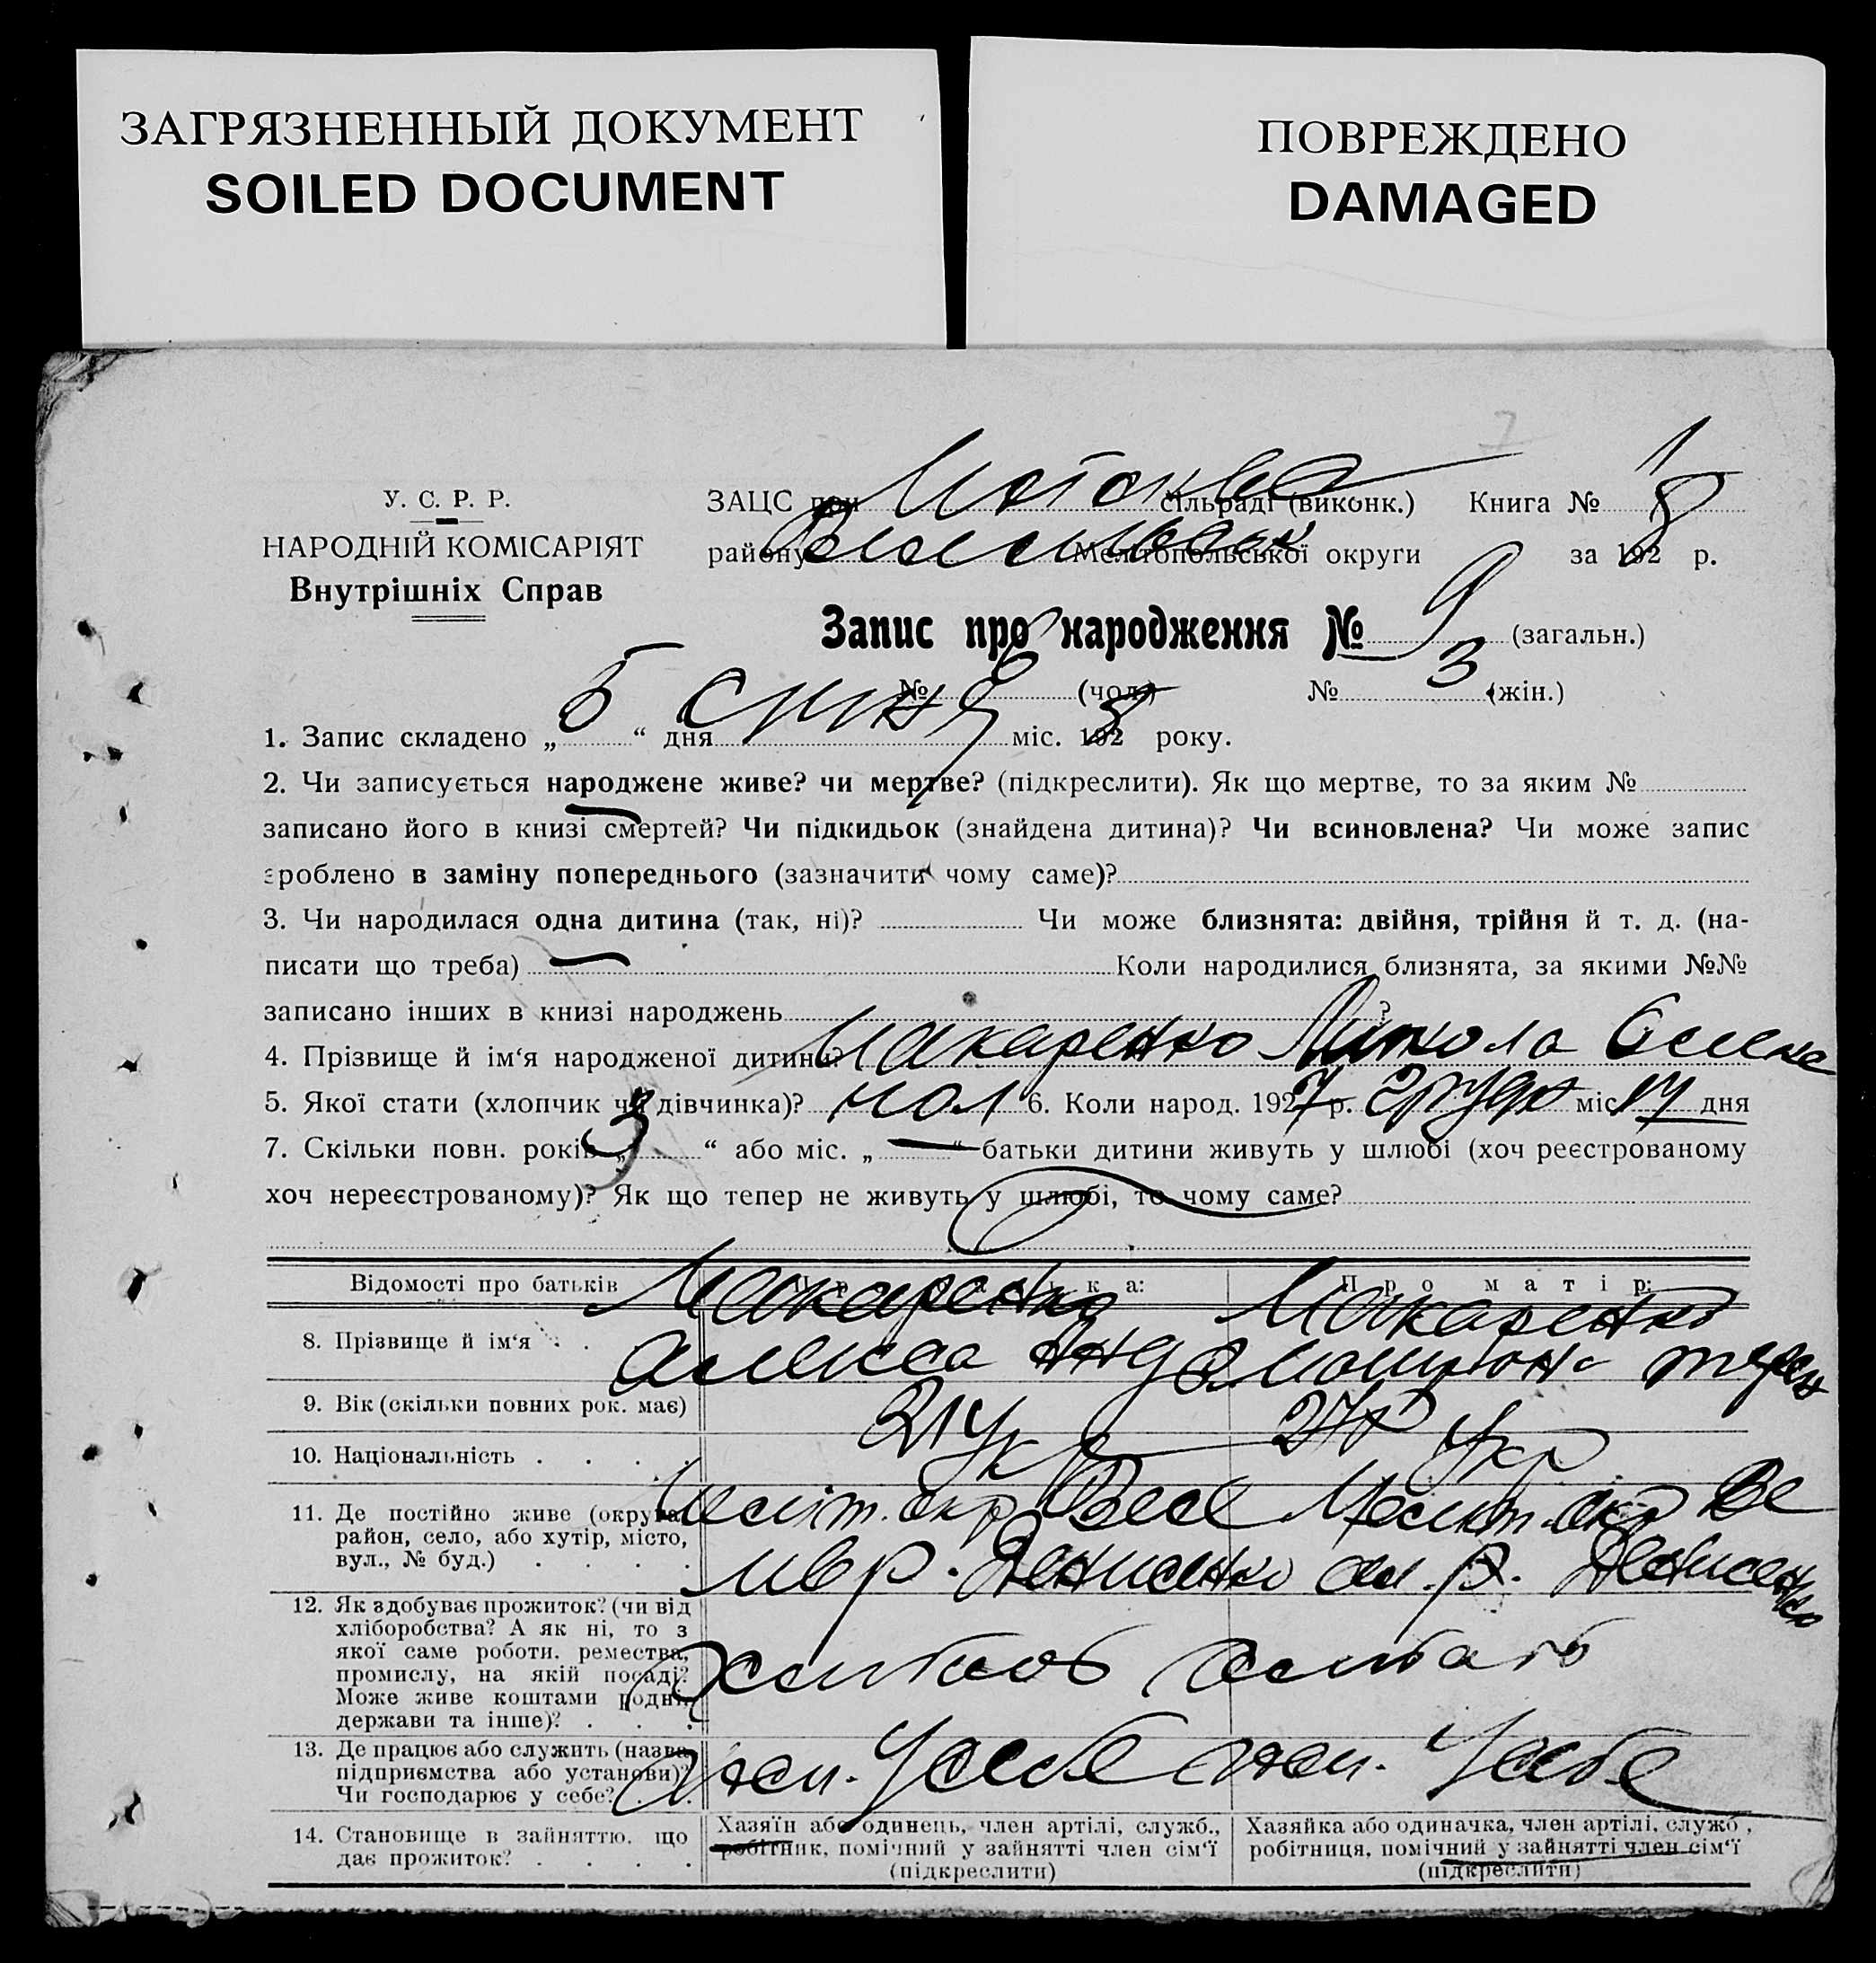 ЗАГРЯЗНЕННЫЙ ДОКУМЕНТ
SOILED DOCUMENT
ПОВРЕЖДЕНО
DAMAGED
У. С. Р. Р.
НАРОДНІЙ КОМІСАРІЯТ
Внутрішніх Справ
ЗАЦС при сільраді (виконк.) Книга № 1
району Мелітопольської округи за 1928 р.
Запис про народження № 9 (загальн.)
№ 6 (чол.) № 3 (жін.)
1. Запис складено „ 5 “ дня січня міс. 1928 року.
2. Чи записується народжене живе? чи мертве? (підкреслити). Як що мертве, то за яким №
записано його в книзі смертей? Чи підкидьок (знайдена дитина)? Чи всиновлена? Чи може запис
зроблено в заміну попереднього (зазначити чому саме)?
3. Чи народилася одна дитина (так, ні)? Чи може близнята: двійня, трійня й т. д. (на-
писати що треба) Коли народилися близнята, за якими №№
записано інших в книзі народжень ?
4. Прізвище й ім‘я народженої дитини? Макаренко Микола
5. Якої стати (хлопчик чи дівчинка)? чол 6. Коли народ. 1927 р. грудн міс. 17 дня
7. Скільки повн. років „ 3 “ або міс. „ — “ батьки дитини живуть у шлюбі (хоч реєстрованому
хоч нереєстрованому)? Як що тепер не живуть у шлюбі, то чому саме?
Відомості про батьків Про батька: Про матір:
Макаренко Макаренко
8. Прізвище й ім‘я
9. Вік (скільки повних рок. має) 21
10. Національність Укр Укр
11. Де постійно живе (округа, Меліт. окр Весе Меліт. окр Ве
район, село, або хутір, місто,
вул., № буд.)
12. Як здобуває прожиток? (чи від
хліборобства? А як ні, то з
якої саме роботи, ремества,
промислу, на якій посаді?
Може живе коштами рідні,
держави та інше)?
13. Де працює або служить (назва
підприємства або установи)?
Чи господарює у себе?
14. Становище в зайняттю, що
дає прожиток?
Хазяїн або одинець, член артілі, служб.,
робітник, помічний у зайнятті член сім‘ї
(підкреслити)
Хазяйка або одиначка, член артілі, служб.,
робітниця, помічний у зайнятті член сім‘ї
(підкреслити)